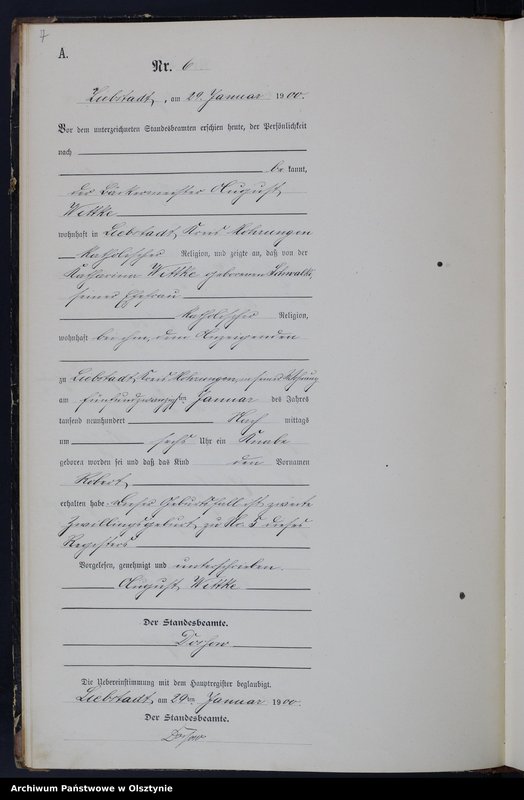 7
A.
Nr. 6
Liebstadt, am 29 Januar 1900.
Vor dem unterzeichneten Standesbeamten erschien heute, der Persönlichkeit
nach
be kannt,
der Bäckermeister August
Wettke
wohnhaft in Liebstadt, Kreis Mohrungen
katholischer Religion, und zeigte an, daß von der
Katharina Wettke geborenen Schwalk,
seiner Ehefrau
katholischer Religion,
wohnhaft bei ihm, dem Anzeigenden
zu Liebstadt, Kreis Mohrungen, in seiner Wohnung
am fünfundzwanzigsten Januar des Jahres
tausend neunhundert Nach mittags
um sechs Uhr ein Knabe
geboren worden sei und daß das Kind den Vornamen
Robert
erhalten habe. Dieser Geburtsfall ist zweite
Zwillingsgeburt zu Nr. 5 dieses
Registers
Vorgelesen, genehmigt und unterschrieben.
August Wettke
Der Standesbeamte.
Die Uebereinstimmung mit dem Hauptregister beglaubigt.
Liebstadt, am 29ten Januar 1900.
Der Standesbeamte.
Archiwum Państwowe w Olsztynie